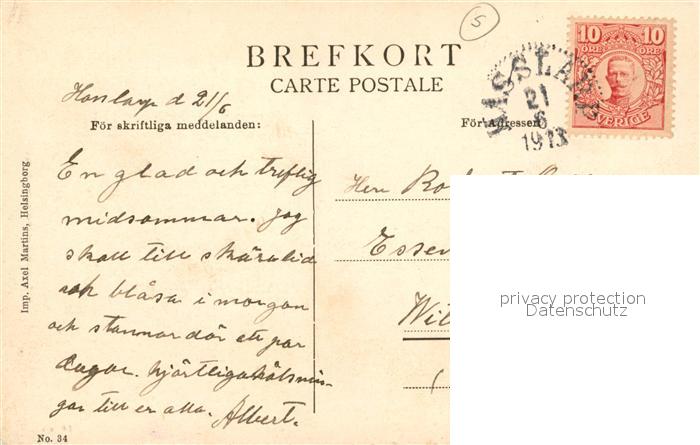 5
BREFKORT
CARTE POSTALE
10 10
ÖRE ÖRE
SVERIGE
21
6
1913
d 21/6
För skriftliga meddelanden:
För Adressen
En glad och treflig
midsommar. Jag
skall till skäralid
och blåsa i morgon
och stannar där ett par
dagar. hjärtliga hälsnin-
gar till er alla. Albert.
Herr
Essen
Wil
Imp. Axel Martins, Helsingborg.
No. 34
privacy protection
Datenschutz